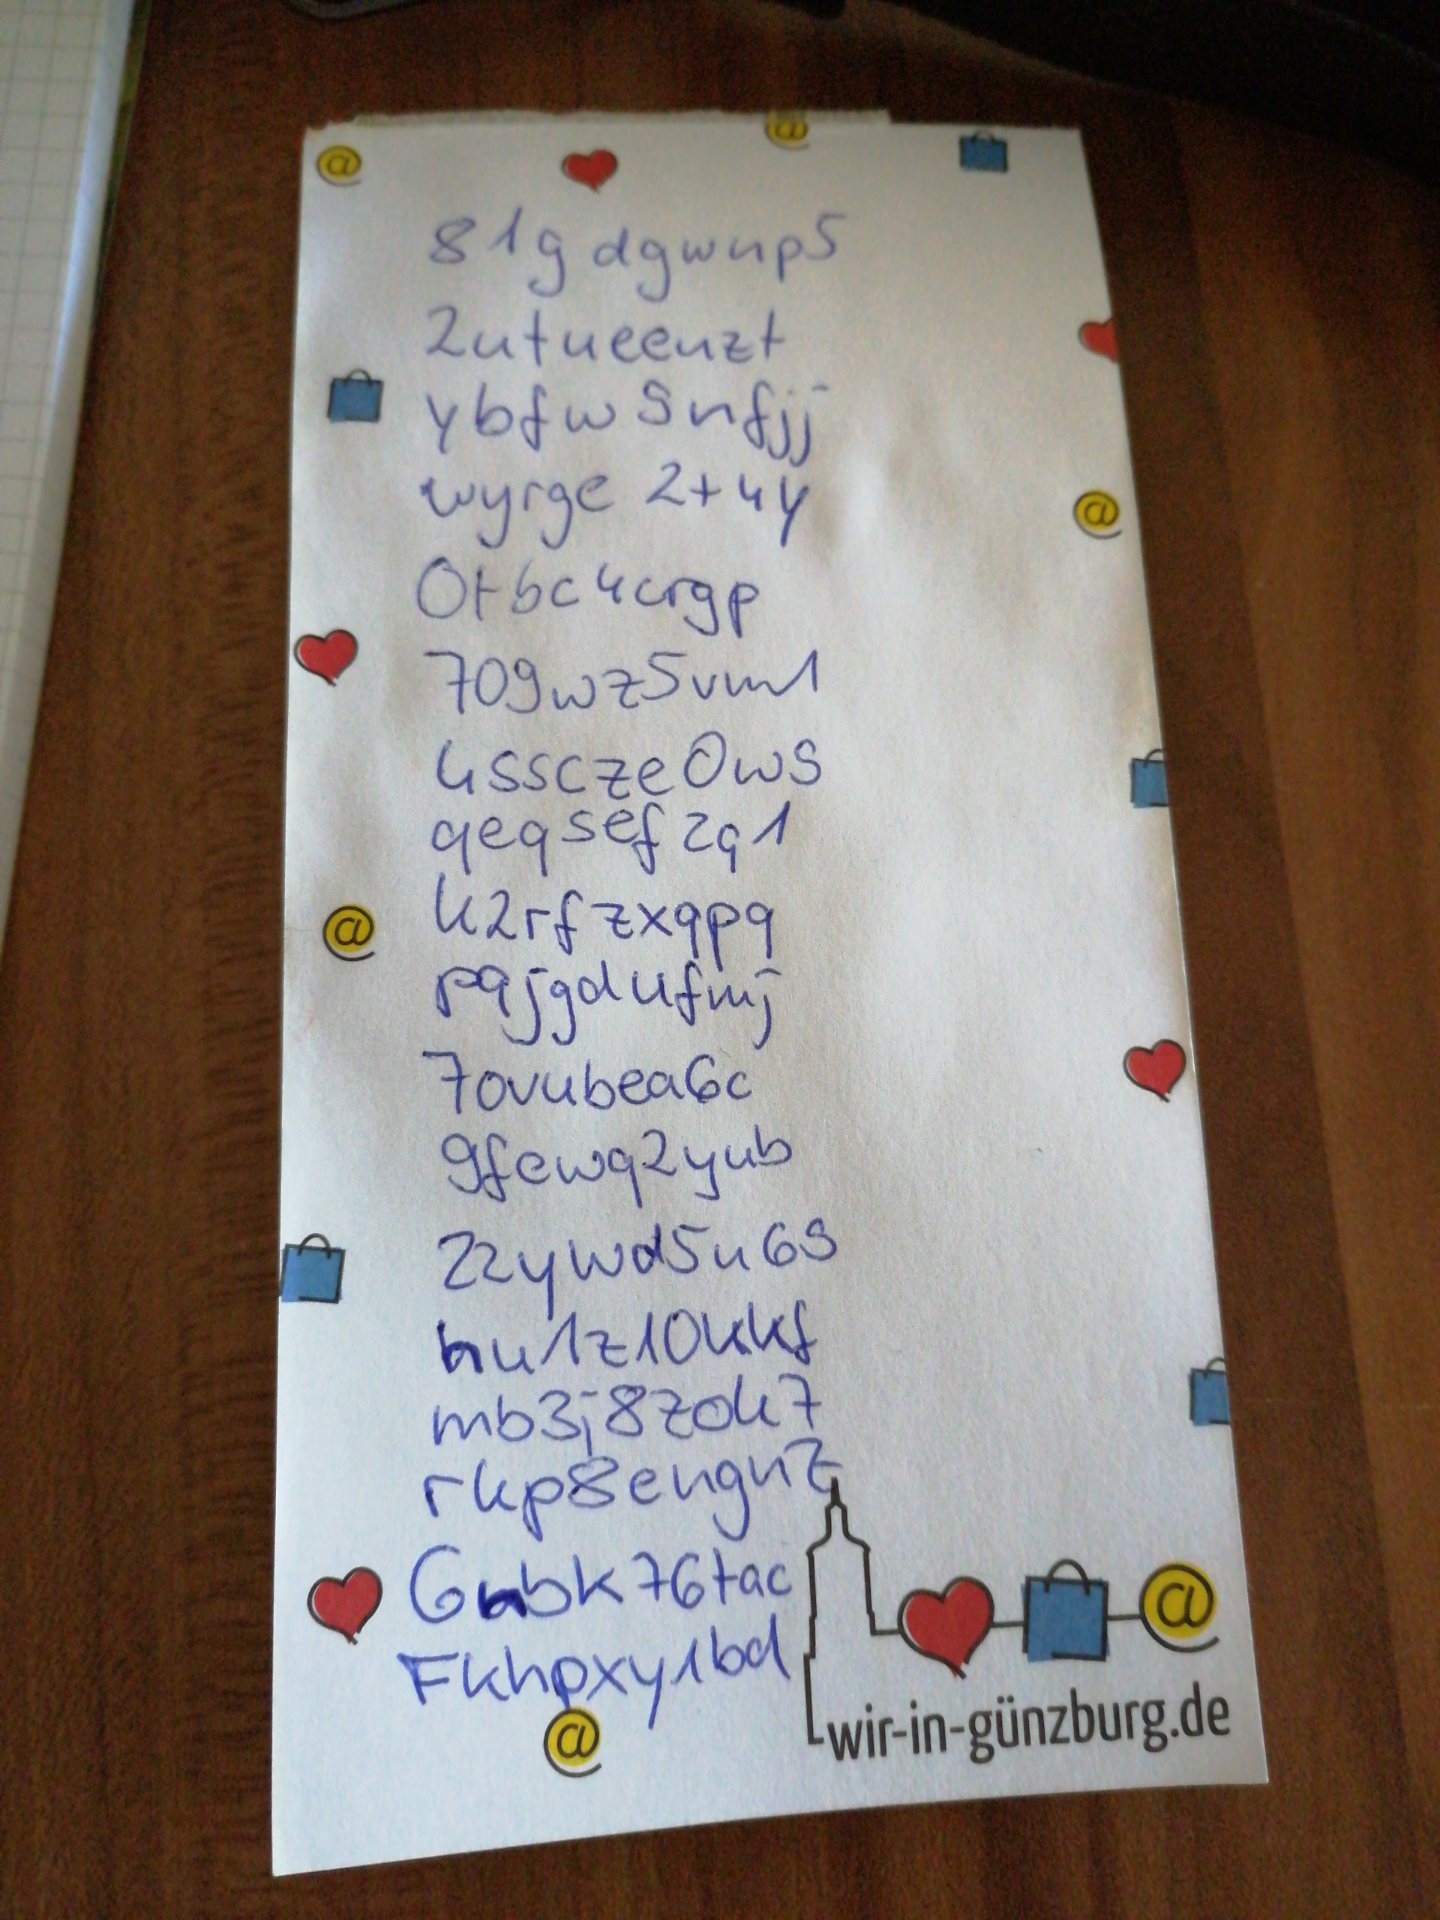 81gdgwnp5
2utueenzt
ybfw9nfjj
wyrge2t4y
0tbc4crgp
709wz5vm1
4sscze0w9
qeqsefzq1
k2rfzxqpq
pqjgdufmj
7ovubea6c
9fewq2yub
2zywd5u69
hu1z10kkf
mb3j8zok7
rkp8engnz
6nbk76tac
Fkhpxy1bd
wir-in-günzburg.de